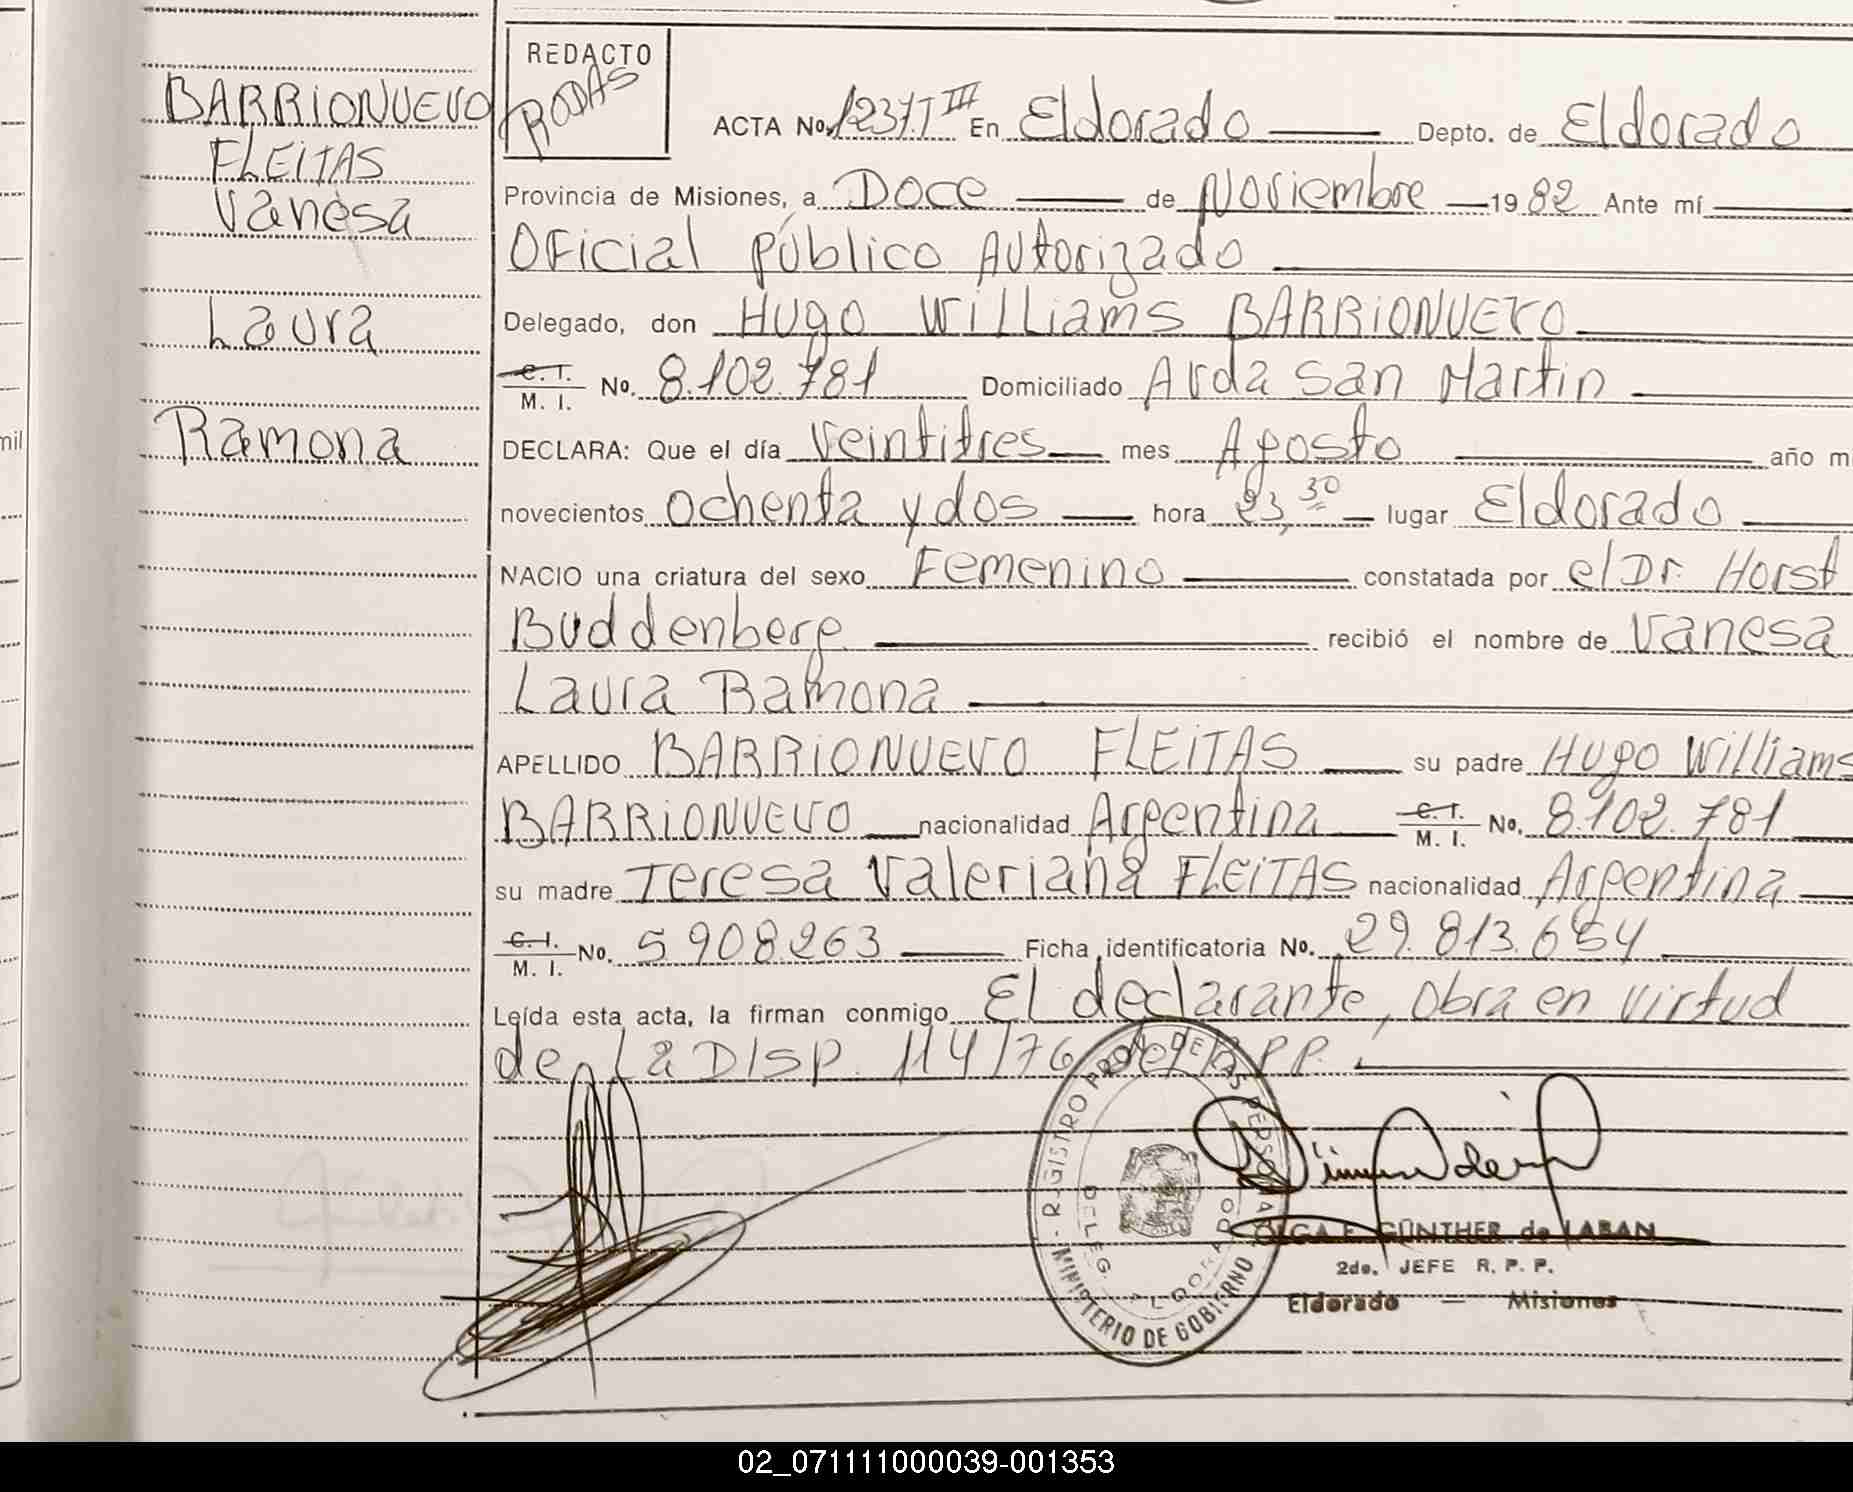 BARRIONUEVO
FLEITAS
Vanesa
Laura
Ramona
mil
REDACTO
RODAS
ACTA No. 1237 T III En Eldorado Depto. de Eldorado
Provincia de Misiones, a Doce de Noviembre 1982 Ante mí
Oficial Público Autorizado
Delegado, don Hugo Williams BARRIONUEVO
C. I. M. I. No. 8.102.781 Domiciliado Avda San Martin
DECLARA: Que el día veintitres mes Agosto año m
novecientos ochenta y dos hora 23,30 lugar Eldorado
NACIO una criatura del sexo Femenino constatada por el Dr. Horst
Buddenberg recibió el nombre de Vanesa
Laura Ramona
APELLIDO BARRIONUEVO FLEITAS su padre Hugo Williams
BARRIONUEVO nacionalidad Argentina C. I. M. I. No. 8.102.781
su madre Teresa Valeriana FLEITAS nacionalidad Argentina
C. I. M. I. No. 5.908.263 Ficha identificatoria No. 29.813.654
Leída esta acta, la firman conmigo El declarante, obra en virtud
de La Disp. 114/76 del R.P.P.
REGISTRO PROV. DE LAS PERSONAS
MINISTERIO DE GOBIERNO
DELEG. ELDORADO
OLGA E. GÜNTHER de LABAN
2do. JEFE R. P. P.
Eldorado — Misiones
02_071111000039-001353